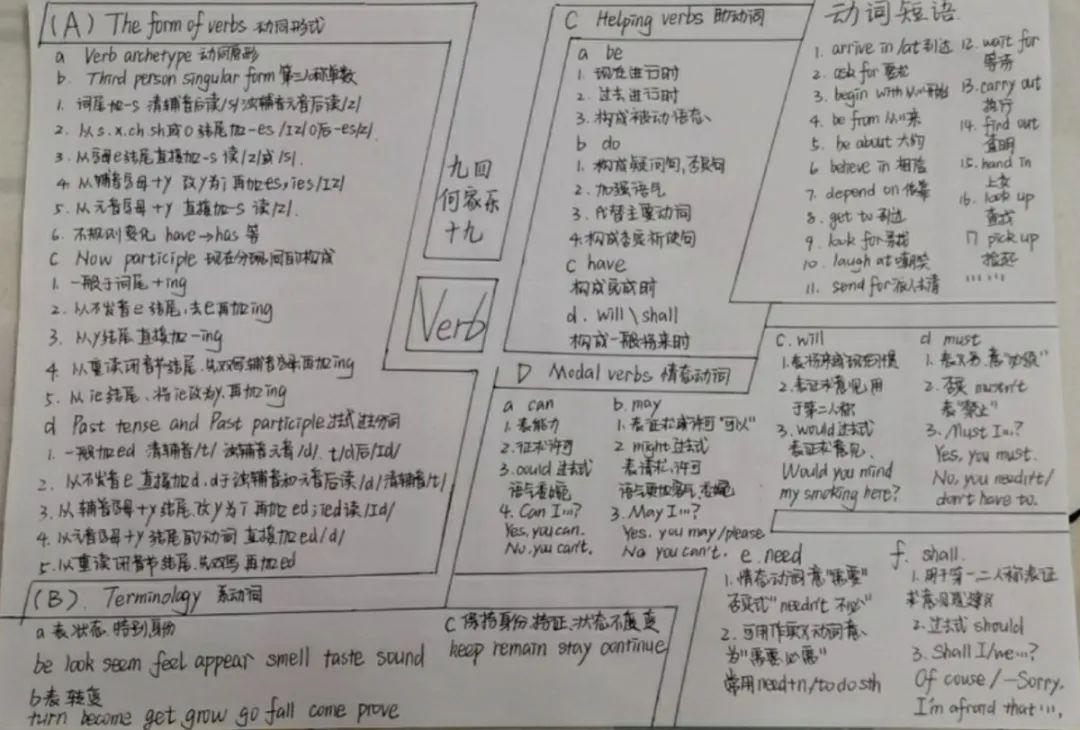 (A) The form of verbs 动词形式
a Verb archetype 动词原形
b. Third person singular form 第三人称单数
1. 词尾加-s 清辅音后读/s/ 浊辅音元音后读/z/
2. 以s.x.ch.sh或o结尾加-es /Iz/ o后-es/z/.
3. 以字母e结尾直接加-s 读/z/或/s/.
4. 以辅音字母+y 改y为i再加es, ies/Iz/
5. 以元音字母+y 直接加-s 读/z/.
6. 不规则变化 have→has 等
C Now participle 现在分词的构成
1. 一般于词尾+ing
2. 以不发音e结尾,去e再加ing
3. 以y结尾直接加-ing
4. 以重读闭音节结尾.先双写辅音字母再加ing
5. 以ie结尾、将ie改为y.再加ing
d Past tense and Past participle 过去式过去分词
1. 一般加ed 清辅音/t/ 浊辅音元音/d/. t/d后/Id/
2. 以不发音e直接加d, d于浊辅音和元音后读/d/清辅音/t/
3. 以辅音字母+y结尾.改y为i再加ed; ied读/Id/
4. 以元音字母+y结尾的动词 直接加ed/d/
5. 以重读闭音节结尾.先双写再加ed
(B). Terminology 系动词
a 表状态.特别身份
be look seem feel appear smell taste sound
b 表转变
turn become get grow go fall come prove
C 保持身份.特征.状态不变
keep remain stay continue
九四
何家乐
十九
Verb
C Helping verbs 助动词
a be
1. 现在进行时
2. 过去进行时
3. 构成被动语态
b do
1. 构成疑问句,否定句
2. 加强语气
3. 代替主要动词
4. 构成否定祈使句
C have
构成完成时
d. will \ shall
构成一般将来时
动词短语
1. arrive in /at 到达
2. ask for 要求
3. begin with 以…开始
4. be from 从…来
5. be about 大约
6 believe in 相信
7. depend on 依靠
8. get to 到达
9. look for 寻找
10. laugh at 嘲笑
11. send for 派人去请
12. wait for
等待
13. carry out
执行
14. find out
查明
15. hand in
上交
16. look up
查找
17 pick up
捡起
……
D Modal verbs 情态动词
a can
1. 表能力
2. 征求许可
3. could 过去式
语气委婉
4. Can I…?
Yes, you can.
No, you can't.
b. may
1. 表征求或许可"可以"
2 might 过去式
表请求,许可
语气更加客气,委婉
3. May I…?
Yes. you may/please
No you can't.
C. will
1. 表将来或现在习惯
2. 表征求意见,用
于第二人称
3. would 过去式
表征求意见.
Would you mind
my smoking here?
d must
1. 表义务.意"必须"
2. 否定 mustn't
表"禁止"
3. Must I…?
Yes, you must.
No, you needn't/
don't have to.
e. need
1. 情态动词意"需要"
否定式"needn't 不必"
2. 可用作实义动词意、
为"需要必需"
常用need+n/to do sth
f. shall.
1. 用于第一二人称表征
求意见或建议
2. 过去式 should
3. Shall I/we…?
Of couse / —Sorry.
I'm afraid that ….